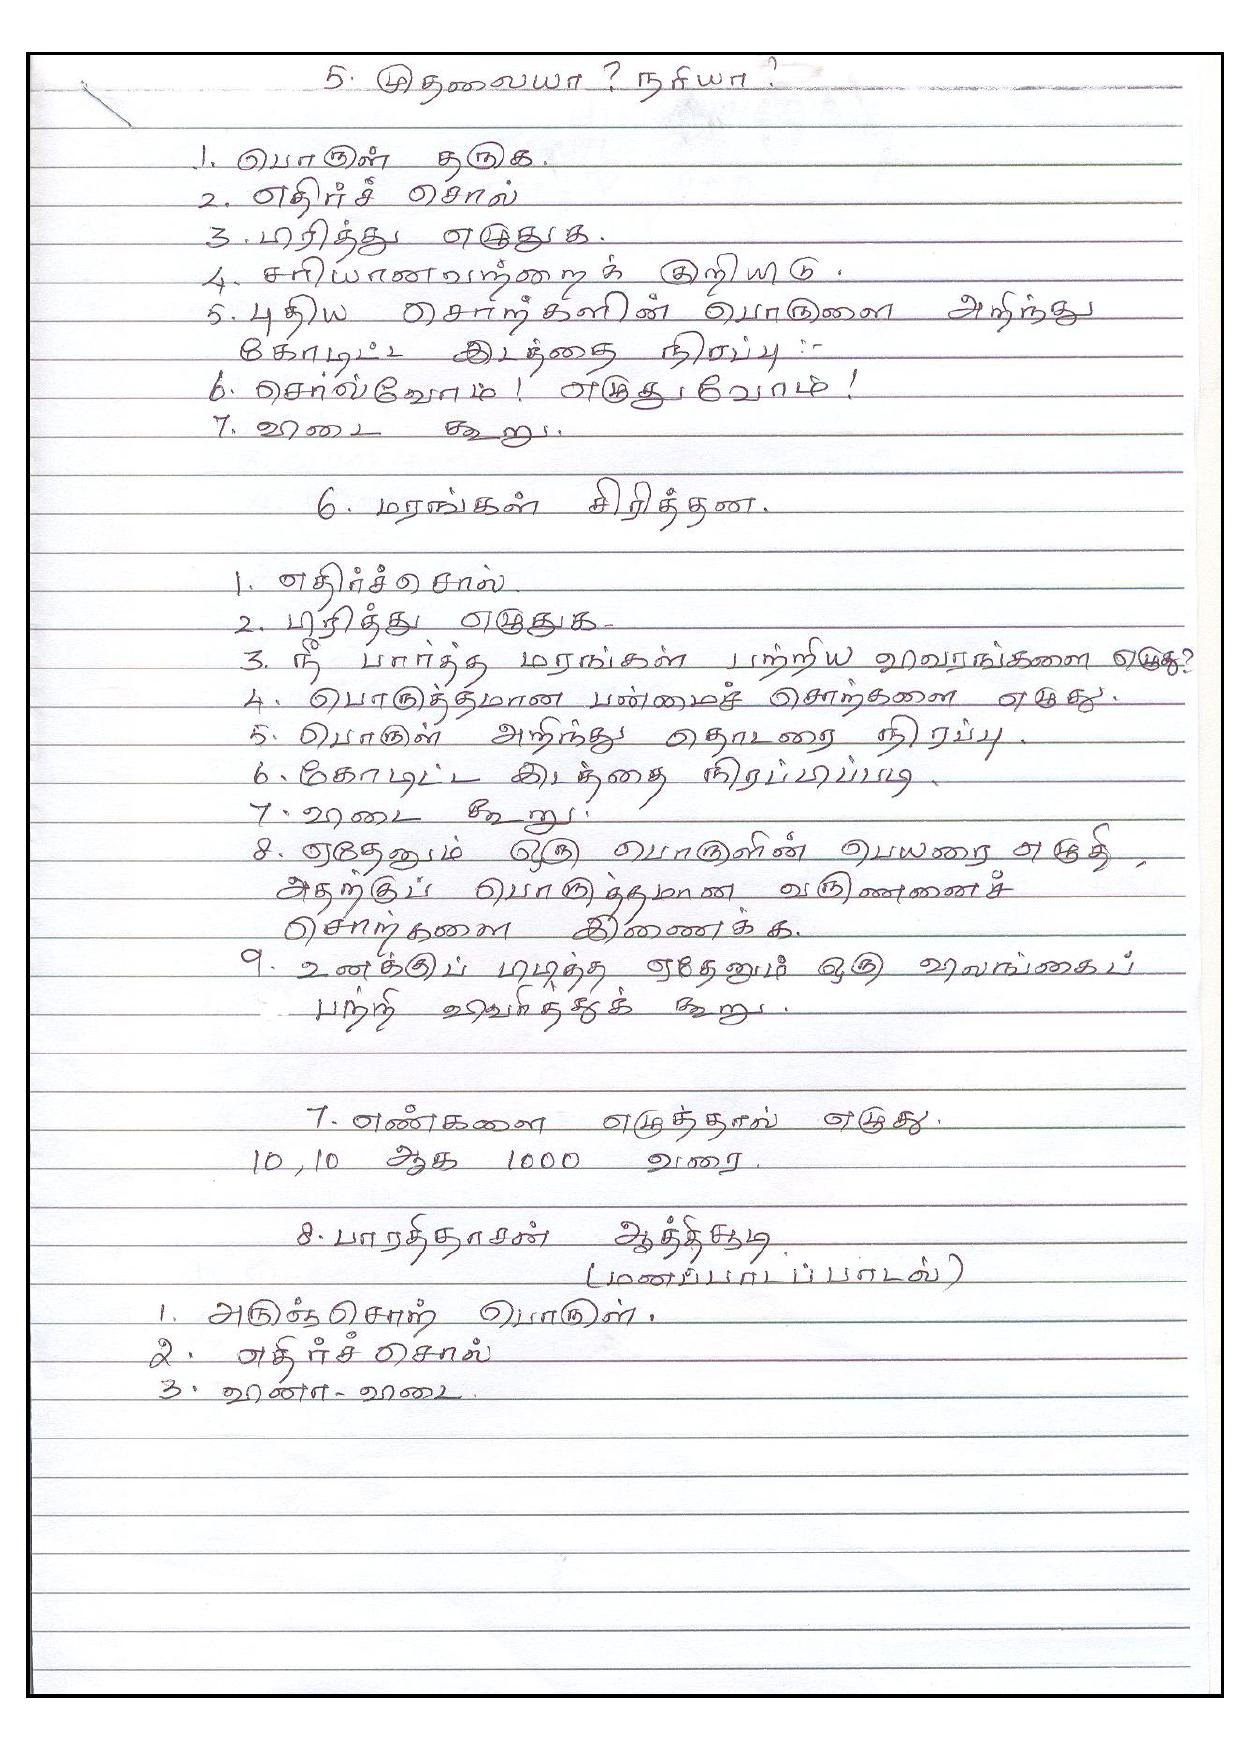 5. முதலையா ? நரியா ?
1. பொருள் தருக.
2. எதிர்ச் சொல்
3. பிரித்து எழுதுக.
4. சரியானவற்றைக் குறியிடு.
5. புதிய சொற்களின் பொருளை அறிந்து
கோடிட்ட இடத்தை நிரப்பு :-
6. சொல்வோம் ! எழுதுவோம் !
7. விடை கூறு.
6. மரங்கள் சிரித்தன.
1. எதிர்ச்சொல்.
2. பிரித்து எழுதுக.
3. நீ பார்த்த மரங்கள் பற்றிய விவரங்களை எழுது?
4. பொருத்தமான பன்மைச் சொற்களை எழுது.
5. பொருள் அறிந்து தொடரை நிரப்பு.
6. கோடிட்ட இடத்தை நிரப்பிப்படி.
7. விடை கூறு.
8. ஏதேனும் ஒரு பொருளின் பெயரை எழுதி,
அதற்குப் பொருத்தமான வருணனைச்
சொற்களை இணைக்க.
9. உனக்குப் பிடித்த ஏதேனும் ஒரு விலங்கைப்
பற்றி விவரித்துக் கூறு.
7. எண்களை எழுத்தால் எழுது.
10,10 ஆக 1000 வரை.
8. பாரதிதாசன் ஆத்திசூடி
(மனப்பாடப்பாடல்)
1. அருஞ்சொற் பொருள்.
2. எதிர்ச் சொல்
3. வினா - விடை.